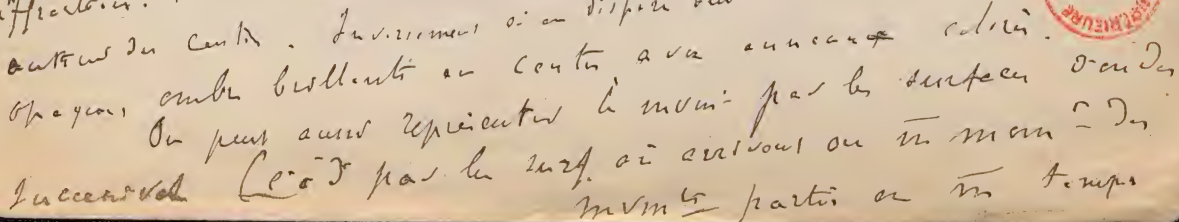 autour du centre. Inversement si on dispose
opaques ombre brillante au centre avec anneaux colorés.
On peut aussi représenter le mvmt par les surfaces d'ondes
successives (c à d par les surf. où arrivent au m mom^t des
mvmts partis en m temps
RIEURE